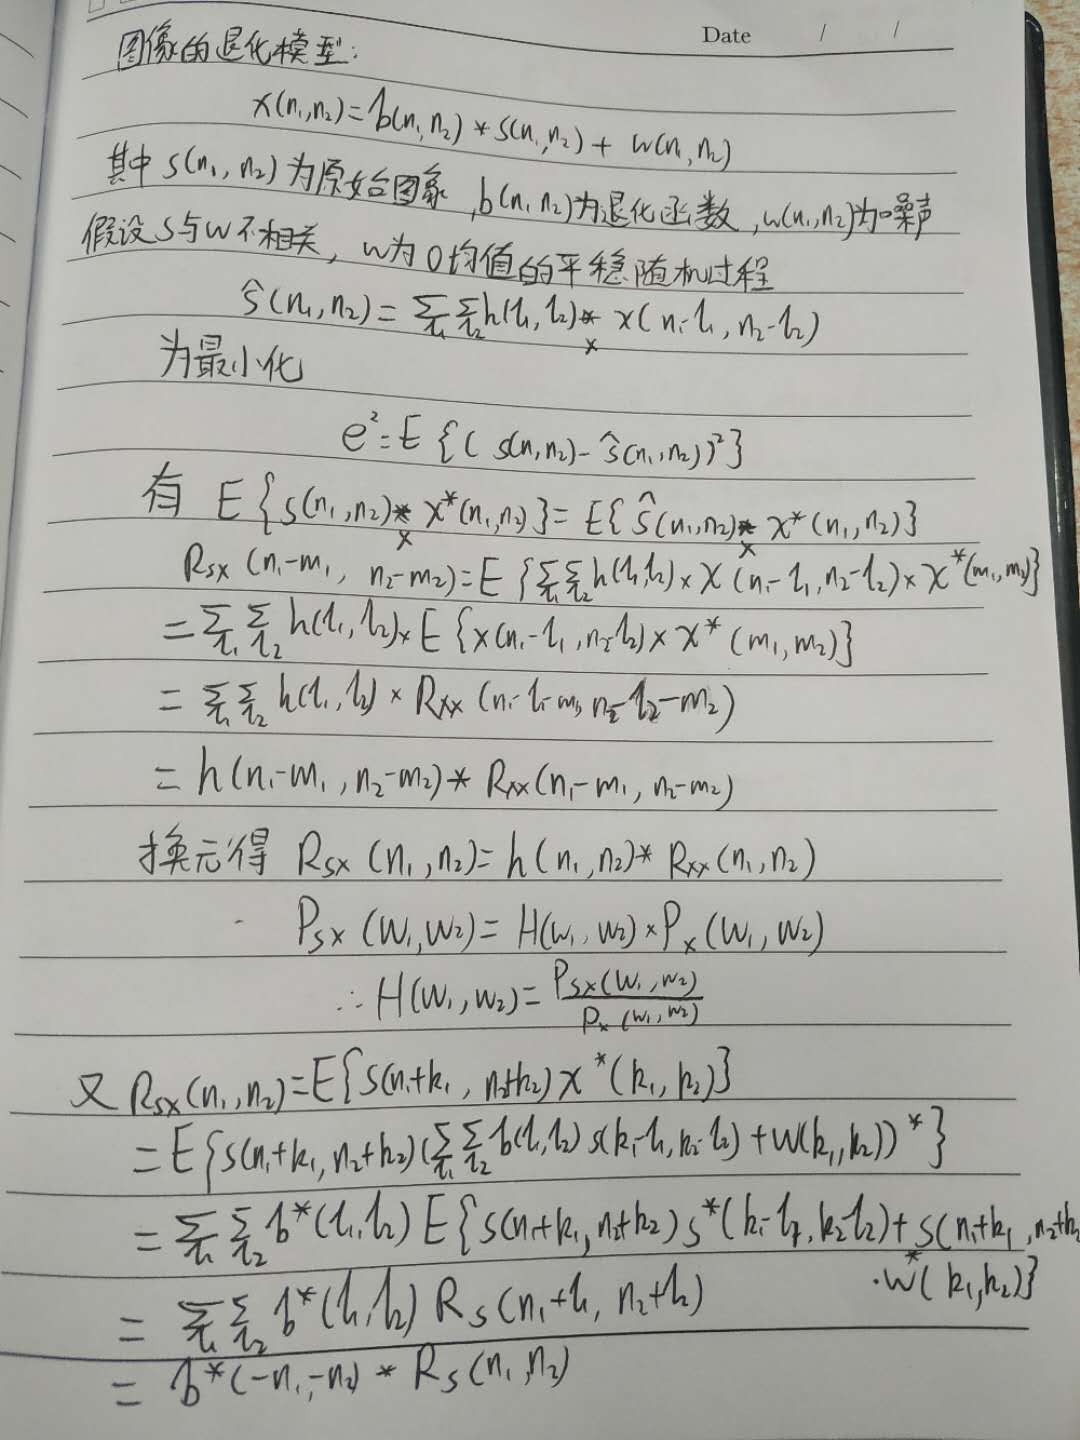 Date / /
图像的退化模型:
x(n₁,n₂)=b(n₁,n₂)*s(n₁,n₂)+w(n₁,n₂)
其中s(n₁,n₂)为原始图象,b(n₁,n₂)为退化函数,w(n₁,n₂)为噪声
假设s与w不相关,w为0均值的平稳随机过程
ŝ(n₁,n₂)=∑l₁∑l₂h(l₁,l₂)×x(n₁-l₁,n₂-l₂)
为最小化
e²=E{(s(n₁,n₂)-ŝ(n₁,n₂))²}
有 E{s(n₁,n₂)×x*(n₁,n₂)}=E{ŝ(n₁,n₂)×x*(n₁,n₂)}
Rsx(n₁-m₁,n₂-m₂)=E{∑l₁∑l₂h(l₁,l₂)×x(n₁-l₁,n₂-l₂)×x*(m₁,m₂)}
=∑l₁∑l₂h(l₁,l₂)×E{x(n₁-l₁,n₂-l₂)×x*(m₁,m₂)}
=∑l₁∑l₂h(l₁,l₂)×Rxx(n₁-l₁-m₁,n₂-l₂-m₂)
=h(n₁-m₁,n₂-m₂)*Rxx(n₁-m₁,n₂-m₂)
换元得 Rsx(n₁,n₂)=h(n₁,n₂)*Rxx(n₁,n₂)
Psx(w₁,w₂)=H(w₁,w₂)×Px(w₁,w₂)
∴H(w₁,w₂)=Psx(w₁,w₂)/Px(w₁,w₂)
又Rsx(n₁,n₂)=E{s(n₁+k₁,n₂+k₂)x*(k₁,k₂)}
=E{s(n₁+k₁,n₂+k₂)(∑l₁∑l₂b(l₁,l₂)s(k₁-l₁,k₂-l₂)+w(k₁,k₂))*}
=∑l₁∑l₂b*(l₁,l₂)E{s(n₁+k₁,n₂+k₂)s*(k₁-l₁,k₂-l₂)+s(n₁+k₁,n₂+k₂
·w*(k₁,k₂)}
=∑l₁∑l₂b*(l₁,l₂)Rs(n₁+l₁,n₂+l₂)
=b*(-n₁,-n₂)*Rs(n₁,n₂)